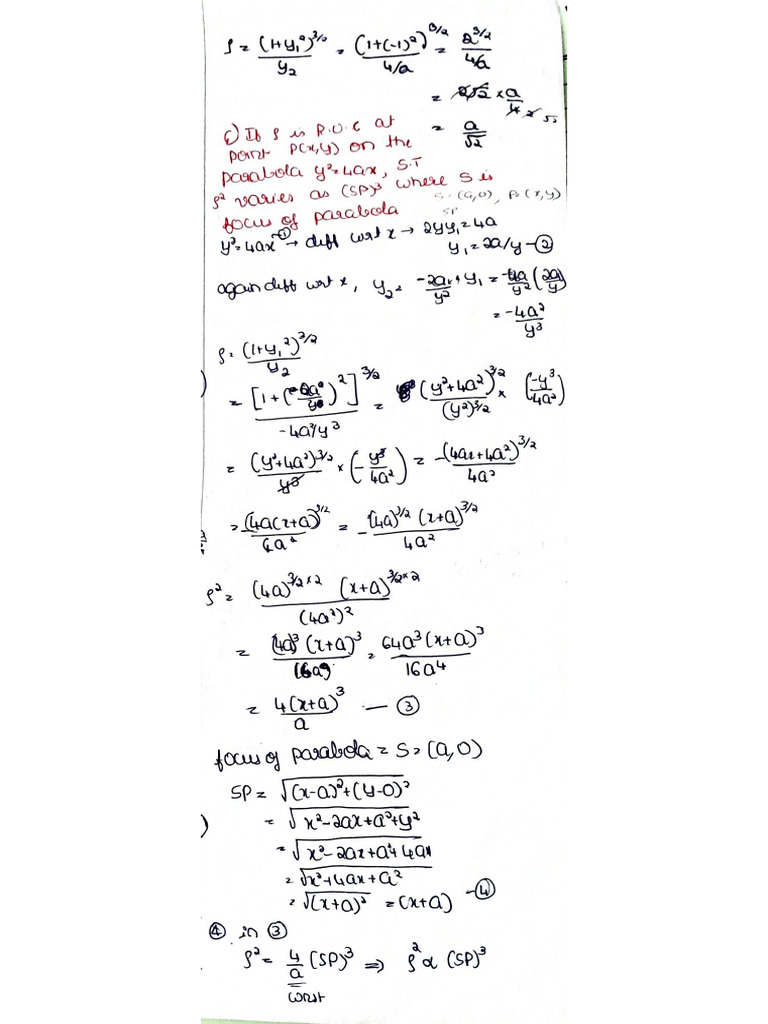 ρ = (1+y₁²)^3/2 / y₂ = (1+(-1)²)^3/2 / 4/a = 2^3/2 / 4/a
= 2√2 × a/4
= a/√2
If ρ is R.O.C at
point P(x,y) on the
parabola y²=4ax, S.T
ρ² varies as (SP)³ where S is
focus of parabola
S=(a,0), P=(x,y)
SP
y²=4ax –① → diff wrt x → 2yy₁=4a
y₁=2a/y –②
again diff wrt x, y₂ = -2a/y² × y₁ = -2a/y² (2a/y)
= -4a²/y³
ρ = (1+y₁²)^3/2 / y₂
= [1+(2a/y)²]^3/2 / -4a²/y³ = (y²+4a²)^3/2 / (y²)^3/2 × (-y³/4a²)
= (y²+4a²)^3/2 / y³ × (-y³/4a²) = -(4ax+4a²)^3/2 / 4a²
= -(4a(x+a))^3/2 / 4a² = -(4a)^3/2 (x+a)^3/2 / 4a²
ρ² = (4a)^3/2×2 (x+a)^3/2×2 / (4a²)²
= (4a)³ (x+a)³ / 16a⁴ = 64a³(x+a)³ / 16a⁴
= 4(x+a)³ / a — ③
focus of parabola = S = (a,0)
SP = √(x-a)²+(y-0)²
= √x²-2ax+a²+y²
= √x²-2ax+a²+4ax
= √x²+4ax+a²
= √(x+a)² = (x+a) –④
④ in ③
ρ² = 4/a (SP)³ ⇒ ρ² ∝ (SP)³
const